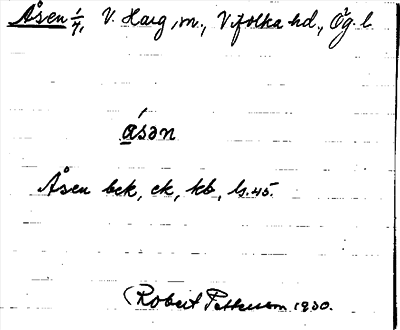 Åsen 1/7, V. Harg, m., Vifolka hd., Ög. l.
ásən
Åsen bek, ek, kb, ls. 45.
Robert Pettersson 1930.